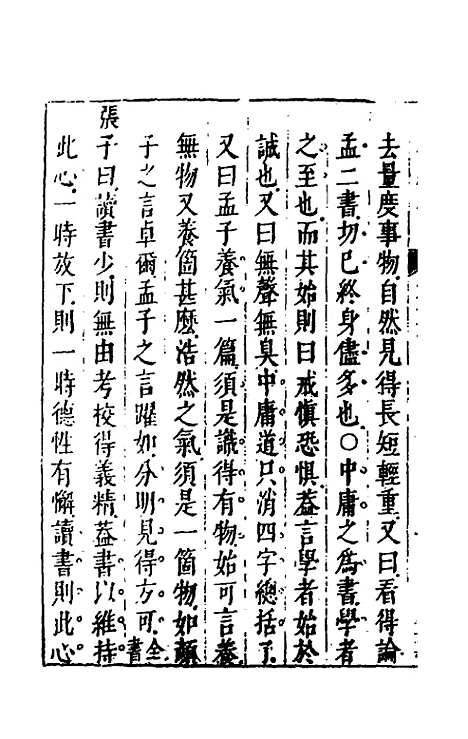 去量度事物自然見得長短輕重又曰看得論
孟二書切己終身儘多也○中庸之爲書學者
之至也而其始則曰戒慎恐懼葢言學者始於
誠也又曰無聲無臭中庸道只消四字總括了
又曰孟子養氣一篇須是識得有物始可言養
無物又養箇甚麽浩然之氣須是一箇物如顏
子之言卓爾孟子之言躍如分明見得方可全書
張子曰讀書少則無由考校得義精葢書以維持
此心一時放下則一時德性有懈讀書則此心